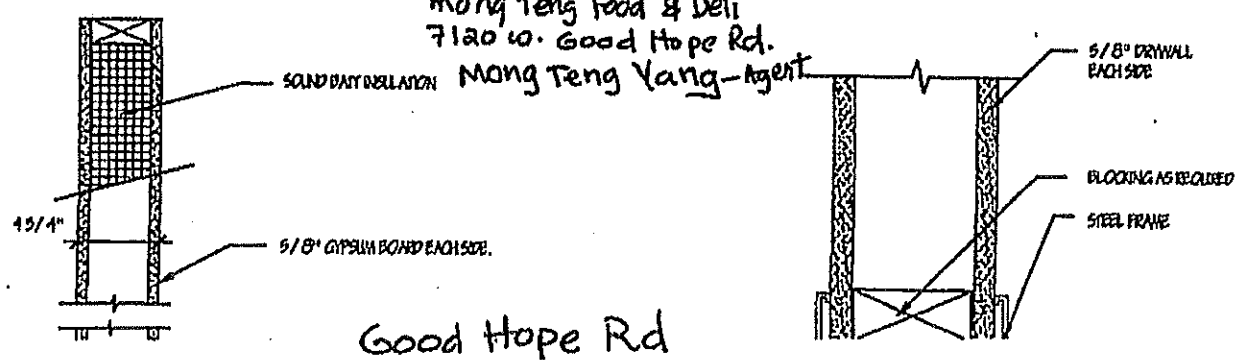 Mong Teng Food & Deli
7120 W. Good Hope Rd.
Mong Teng Vang-Agent
SOUND BATT INSULATION
4 3/4"
5/8" GYPSUM BOARD EACH SIDE.
5/8" DRYWALL
EACH SIDE
BLOCKING AS REQUIRED
STEEL FRAME
Good Hope Rd